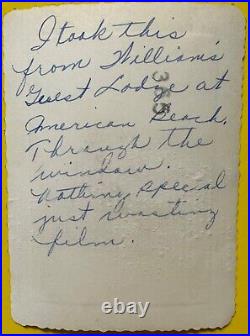 I took this
from Williams
Guest Lodge at
American Beach.
Through the
window.
Nothing special
just wasting
film.
365
thumbnailer.com